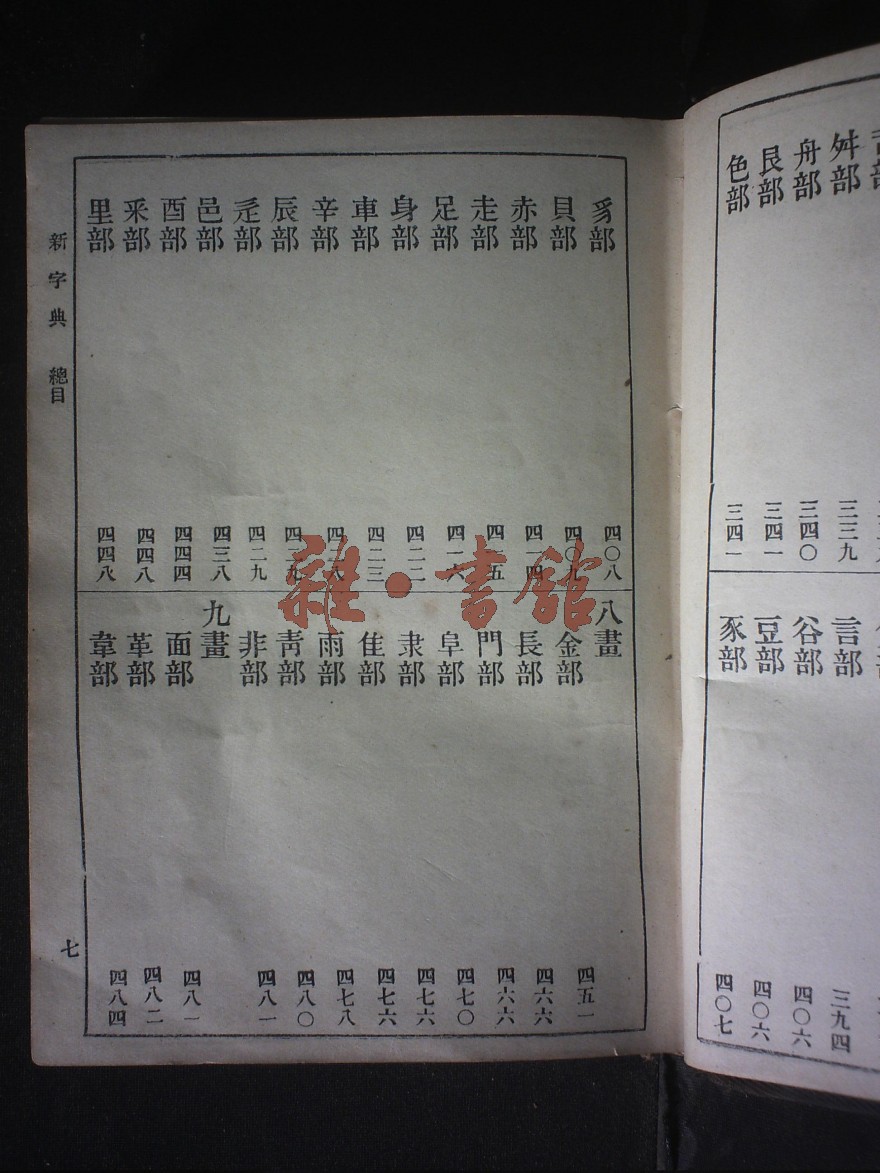 舛部 三三九
舟部 三四〇
艮部 三四一
色部 三四一
言部 三九四
谷部 四〇六
豆部 四〇六
豕部 四〇七
豸部 四〇八
貝部 四〇九
赤部 四一四
走部 四一五
足部 四一六
身部 四二二
車部 四二三
辛部 四二八
辰部 四二九
辵部 四二九
邑部 四三八
酉部 四四四
釆部 四四八
里部 四四八
八畫
金部 四五一
長部 四六六
門部 四六六
阜部 四七〇
隶部 四七六
隹部 四七六
雨部 四七八
靑部 四八〇
非部 四八一
九畫
面部 四八一
革部 四八二
韋部 四八四
新字典 總目 七
雜·書館